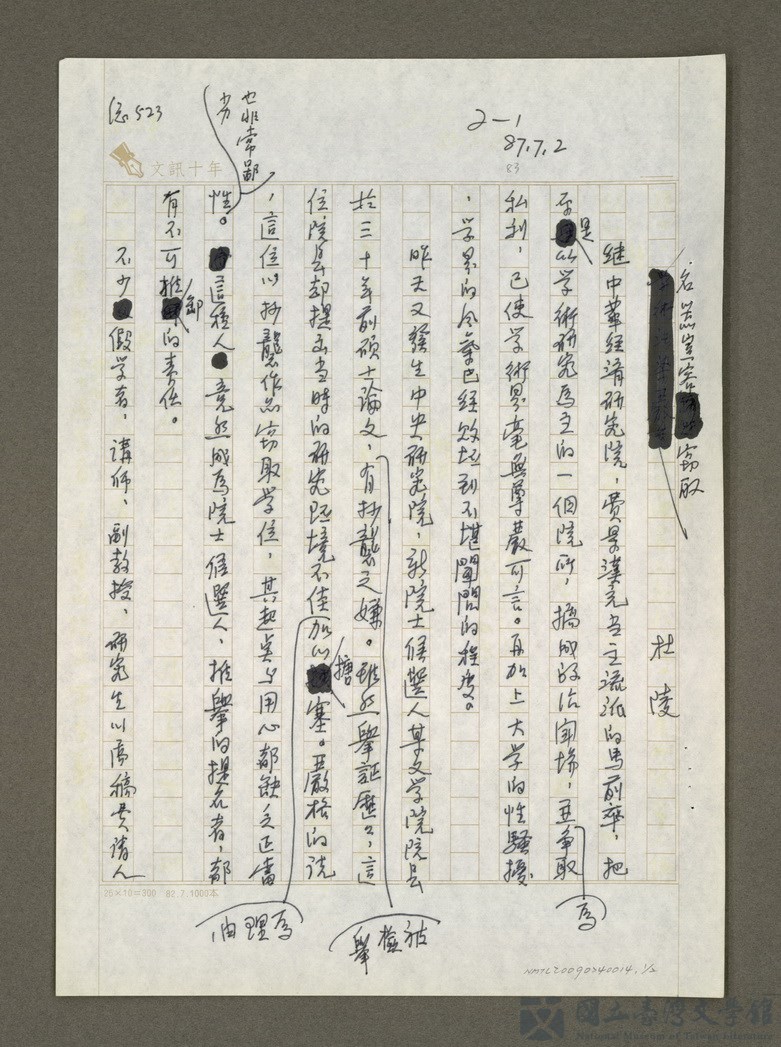 名器豈容竊取
杜陵
継中華経済研究院,費景漢充当主流派的馬前卒,把
不是以学術研究爲主的一個院所,搞成政治軍場,並爭取
私利,已使学術界毫無尊嚴可言。再加上大学的性騷擾
,学界的风氣已経敗坏到不堪聞問的程度。
昨天又發生中央研究院,新院士候選人某文学院院長
於三十年前碩士論文,有抄襲之嫌。雖然舉証歷歷,這
位院長却提出当時的研究环境不佳加以搪塞。嚴格的説
,這位以抄襲作品竊取学位,其起奌与用心都缺乏正當
性。這種人竟然成爲院士候選人,推舉的提名者,都
有不可推卸的責任。
不少假学者,講師,副教授,研究生以高稿費請人
也非常鄙
劣
爲
被檢舉
爲理由
2-1
87.7.2
83
忽523
文訊十年
25×10=300 82.7.1000本
NMTL20090340014,1/2
國立台灣文學館
National Museum of Taiwan Literature